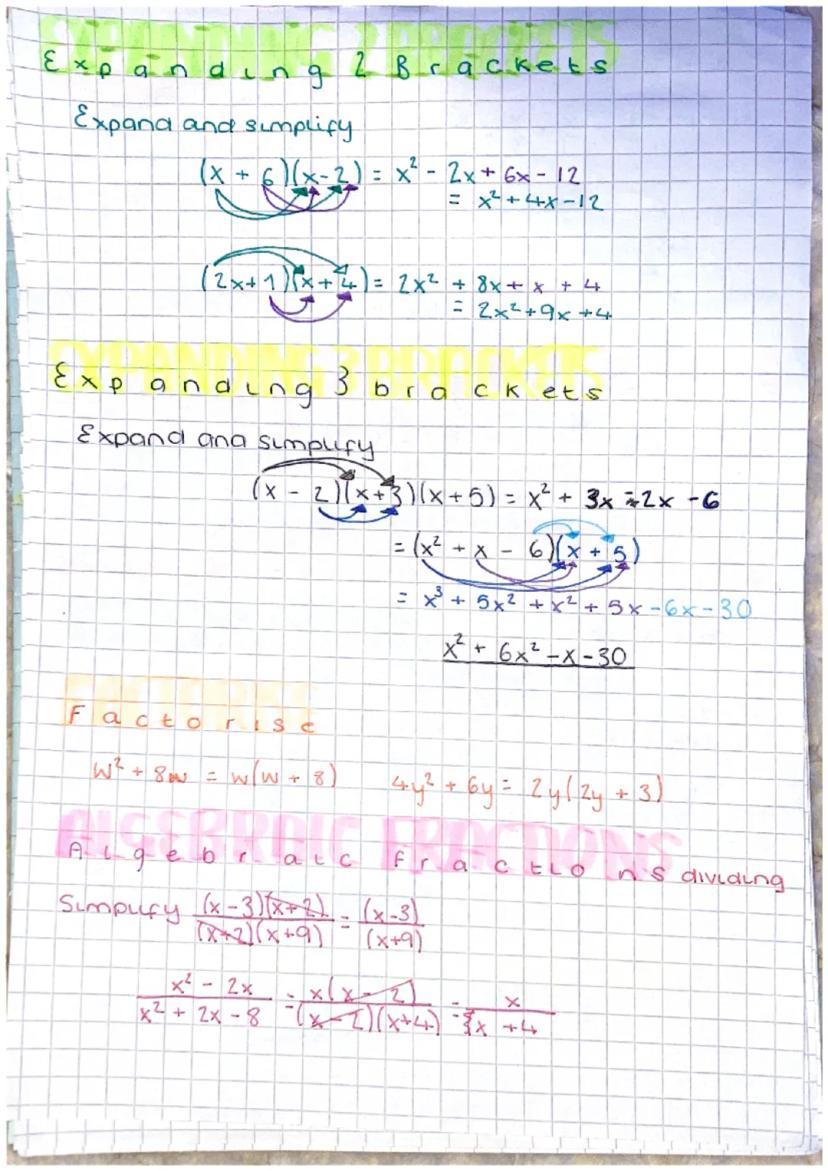 EXPANDING 2 BRACKETS
Expanding 2 Brackets
Expand and simplify
(x + 6)(x-2) = x² - 2x + 6x - 12
= x² + 4x - 12
(2x+1)(x+4) = 2x² + 8x + x + 4
= 2x² + 9x + 4
EXPANDING 3 BRACKETS
Expanding 3 brackets
Expand and simplify
(x - 2)(x+3)(x+5) = x² + 3x - 2x - 6
= (x² + x - 6)(x + 5)
= x³ + 5x² + x² + 5x - 6x - 30
x² + 6x² - x - 30
FACTORISE
Factorise
w² + 8w = w(w + 8) 4y² + 6y = 2y(2y + 3)
ALGEBRAIC FRACTIONS
Algebraic fractions dividing
Simplify (x-3)(x+2) / (x+2)(x+9) = (x-3) / (x+9)
x² - 2x / x² + 2x - 8 = x(x-2) / (x-2)(x+4) = x / x + 4